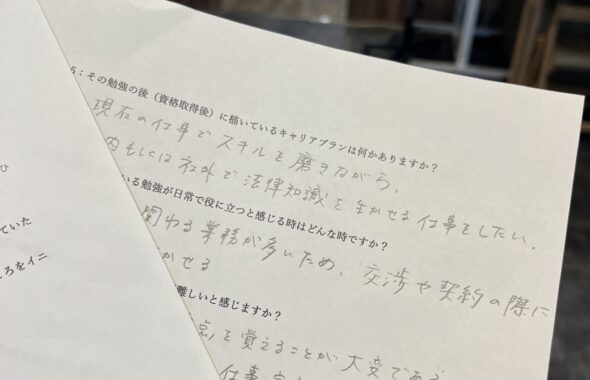 ひ
ていた
ろをイニ
5：その勉強の後（資格取得後）に描いているキャリアプランは何かありますか？
現在の仕事でスキルを磨きながら、
内もしくは社外で法律知識を生かせる仕事をしたい。
いる勉強が日常で役に立つと感じる時はどんな時ですか？
関わる業務が多いため、交渉や契約の際に
かせる
難しいと感じますか？
点を覚えることが大変である
仕事